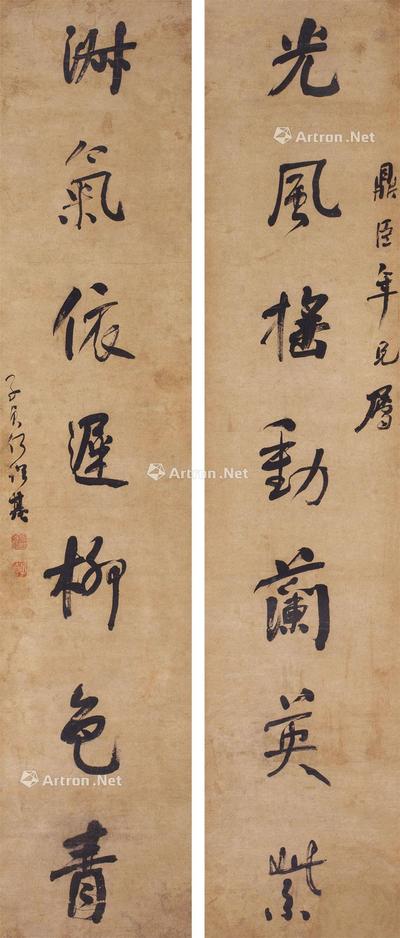 鼎臣年兄屬
光風搖動蘭英紫
淑氣依遲柳色青
子貞何紹基
Artron.Net
Artron.Net
Artron.Net